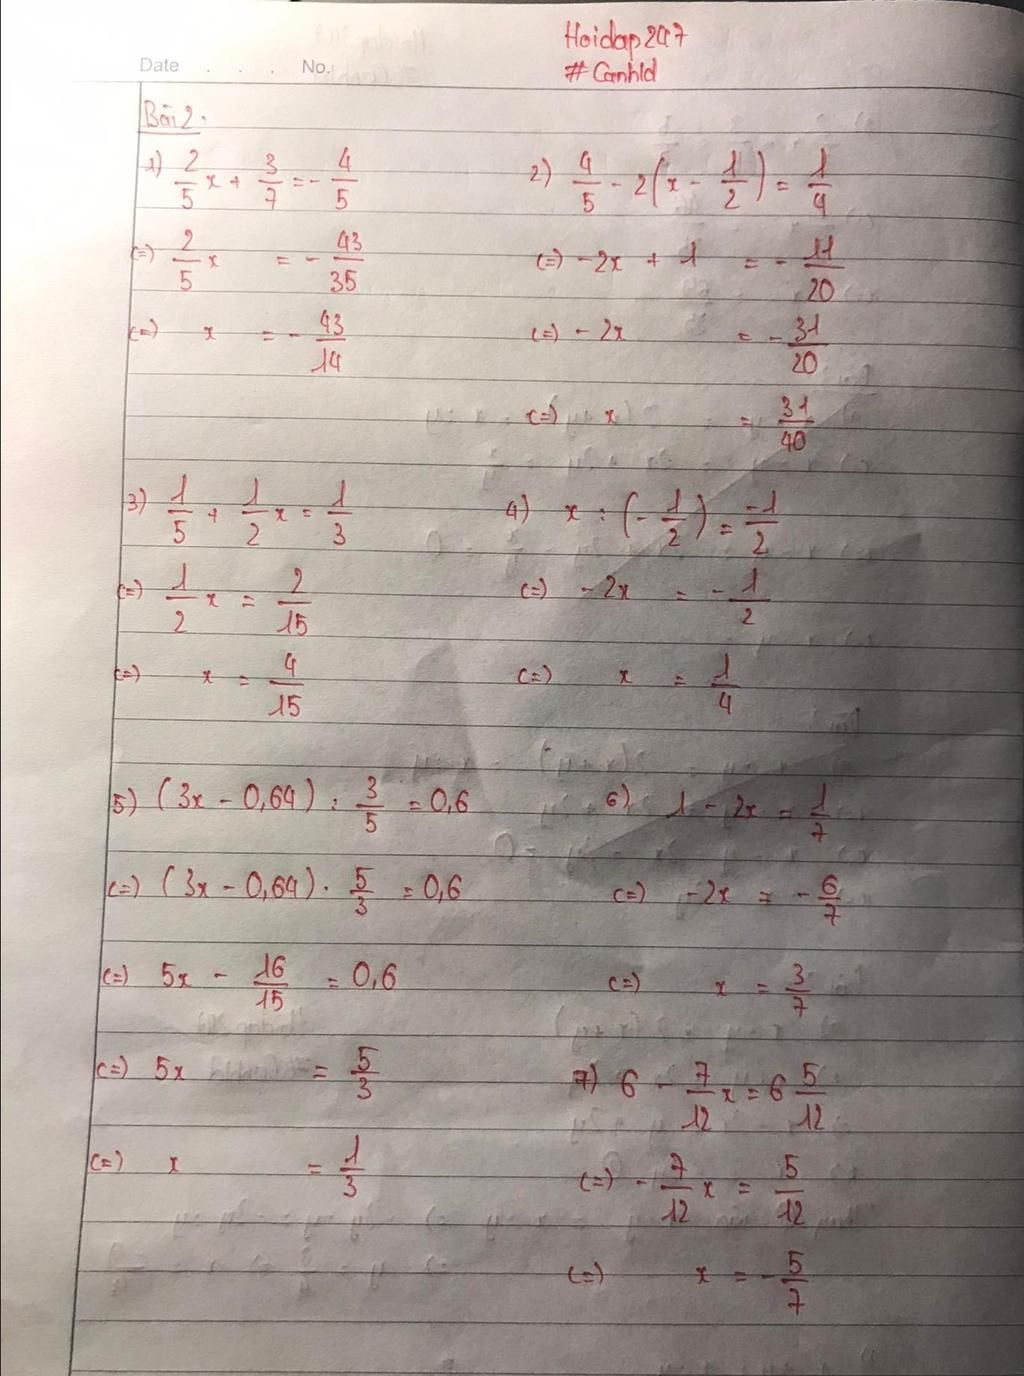 Hoidap247
#Canhld
Date . . . No.
Bài 2:
1) 2/5 x + 3/7 = - 4/5
(=) 2/5 x = - 43/35
(=) x = - 43/14
2) 4/5 - 2(x - 1/2) = 1/4
(=) -2x + 1 = - 11/20
(=) -2x = - 31/20
(=) x = 31/40
3) 1/5 + 1/2 x = 1/3
(=) 1/2 x = 2/15
(=) x = 4/15
4) x : (- 1/2) = -1/2
(=) -2x = - 1/2
(=) x = 1/4
5) (3x - 0,64) : 3/5 = 0,6
(=) (3x - 0,64) . 5/3 = 0,6
(=) 5x - 16/15 = 0,6
(=) 5x = 5/3
(=) x = 1/3
6) 1 - 2x = 1/7
(=) -2x = - 6/7
(=) x = 3/7
7) 6 - 7/12 x = 6 5/12
(=) - 7/12 x = 5/12
(=) x = - 5/7